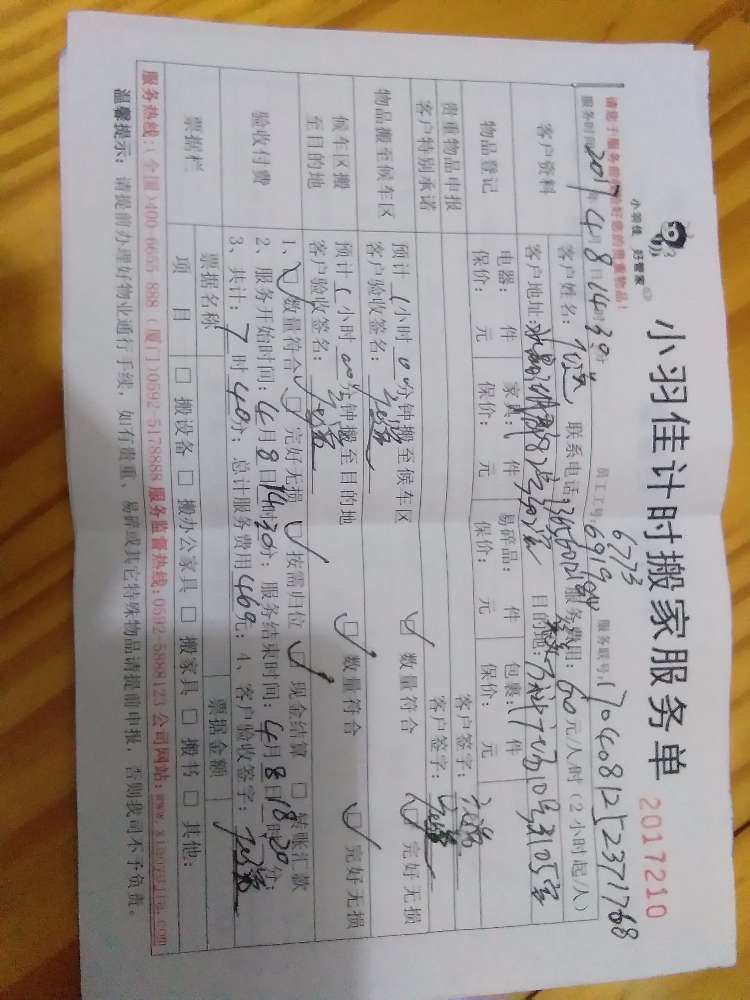 小羽佳 好管家
小羽佳计时搬家服务单
2017210
请您于服务前保管好您的贵重物品！
6773
服务时间：2017年4月8日14时30分 员工工号：6919 服务联号：1704081252371768
客户资料
客户姓名： 联系电话： 服务费用：60元/人/时（2小时起/人）
客户地址： 目的地：
物品登记
电器： 件 家具： 件 易碎品： 件 包裹： 件
保价： 元 保价： 元 保价： 元 保价： 元
贵重物品申报
客户签字：
客户特别承诺
客户签字：
物品搬至候车区
预计1小时0分钟搬至候车区 ☑ 数量符合 ☑ 完好无损
客户验收签名：
候车区搬至目的地
预计1小时00分钟搬至目的地 ☑ 数量符合 ☑ 完好无损
客户验收签名：
验收付费
1、☑ 数量符合 ☑ 完好无损 ☑ 按需归位 ☑ 现金结算 □ 转账汇款
2、服务开始时间：4月8日14时30分；服务结束时间：4月8日18时20分；
3、共计：7时40分；总计服务费用469元；4、客户验收签字：
票据栏
票据名称 票据金额
项 目 □ 搬设备 □ 搬办公家具 □ 搬家具 □ 搬书 □ 其他：
服务热线：（全国）400-6655-888（厦门）0592-5178888 服务监督热线：0592-5888123 公司网站：www.xiaoyujia.com
温馨提示：请提前办理好物业通行手续，如有贵重、易碎或其它特殊物品请提前申报，否则我司不予负责。